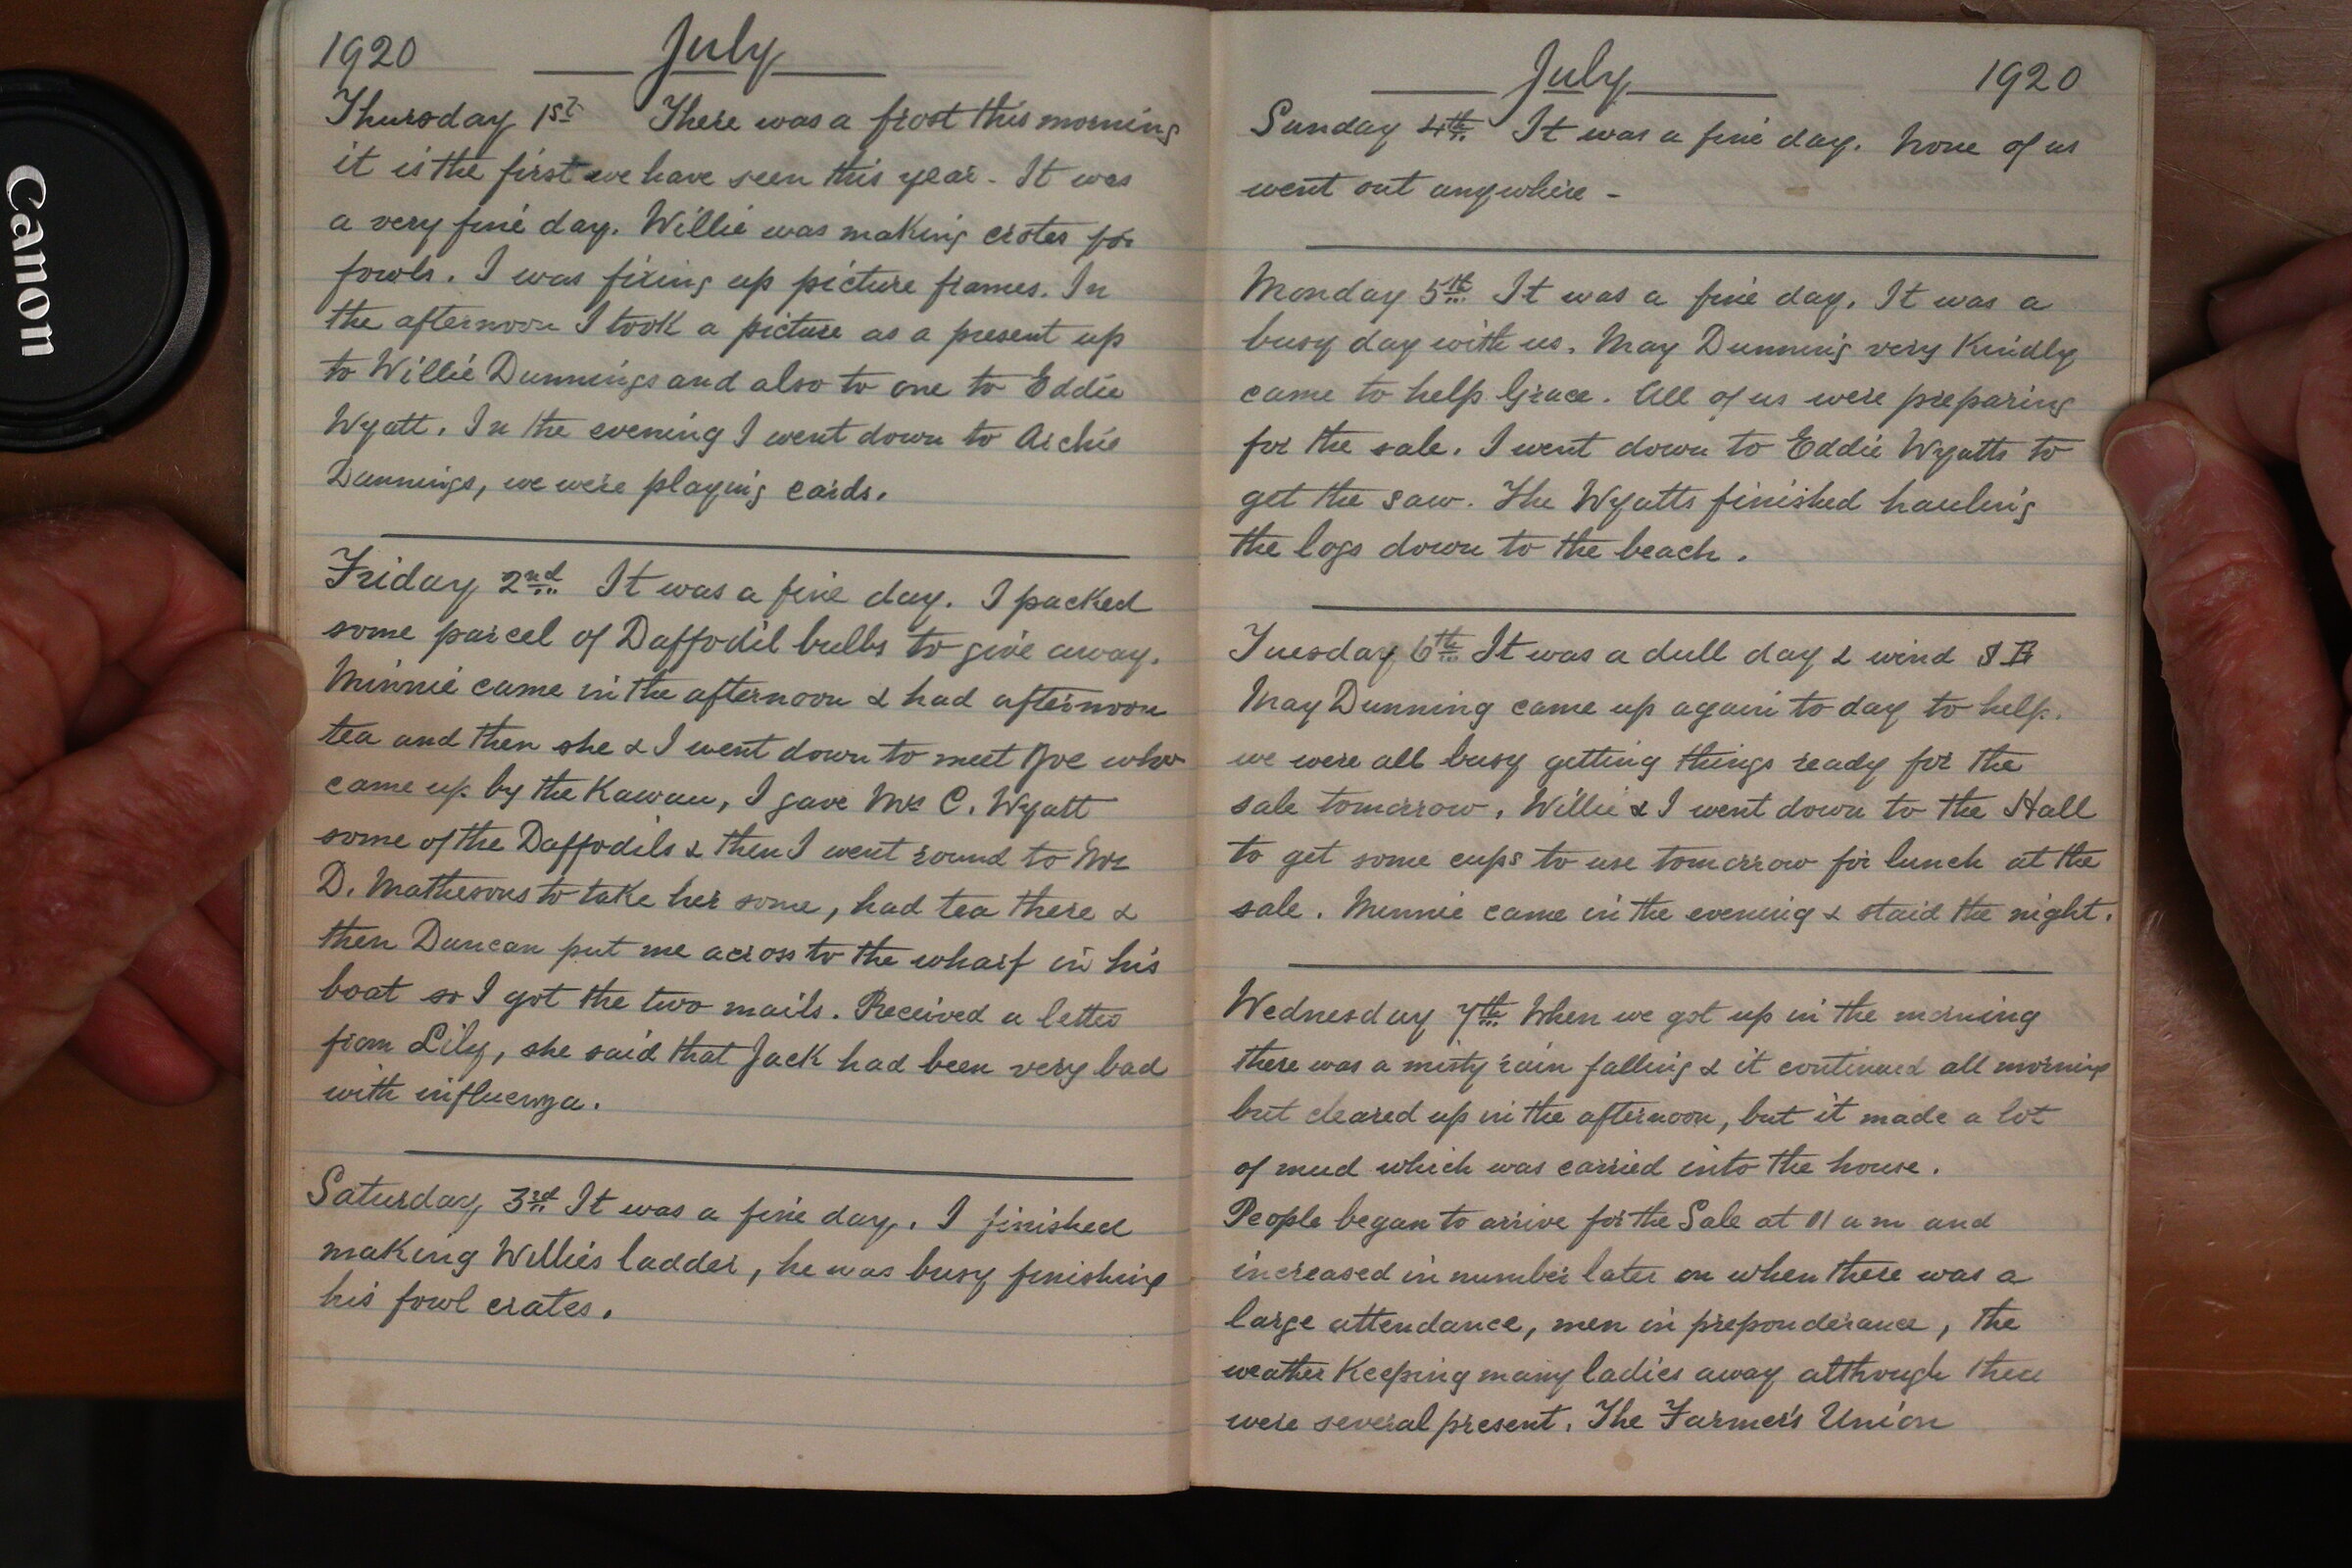 Canon
1920 July
Thursday 1st There was a frost this morning
it is the first we have seen this year - It was
a very fine day. Willie was making crates for
fowls. I was fixing up picture frames. In
the afternoon I took a picture as a present up
to Willie Dunnings and also to one to Eddie
Wyatt. In the evening I went down to Archie
Dunnings, we were playing cards.
Friday 2nd It was a fine day. I packed
some parcel of Daffodil bulbs to give away.
Minnie came in the afternoon & had afternoon
tea and then she & I went down to meet Joe who
came up by the Kawau, I gave Mrs C. Wyatt
some of the Daffodils & then I went round to Mrs
D. Mathesons to take her some, had tea there &
then Duncan put me across to the wharf in his
boat so I got the two mails. Received a letter
from Lily, she said that Jack had been very bad
with influenza.
Saturday 3rd It was a fine day. I finished
making Willies ladder, he was busy finishing
his fowl crates.
July 1920
Sunday 4th It was a fine day. None of us
went out anywhere -
Monday 5th It was a fine day. It was a
busy day with us. May Dunning very Kindly
came to help Grace. All of us were preparing
for the sale. I went down to Eddie Wyatts to
get the saw. The Wyatts finished hauling
the logs down to the beach.
Tuesday 6th It was a dull day & wind S E
May Dunning came up again to day to help.
we were all busy getting things ready for the
sale tomorrow. Willie & I went down to the Hall
to get some cups to use tomorrow for lunch at the
sale. Minnie came in the evening & staid the night.
Wednesday 7th When we got up in the morning
there was a misty rain falling & it continued all morning
but cleared up in the afternoon, but it made a lot
of mud which was carried into the house.
People began to arrive for the Sale at 11 a m and
increased in number later on when there was a
large attendance, men in preponderance, the
weather Keeping many ladies away although there
were several present. The Farmer's Union